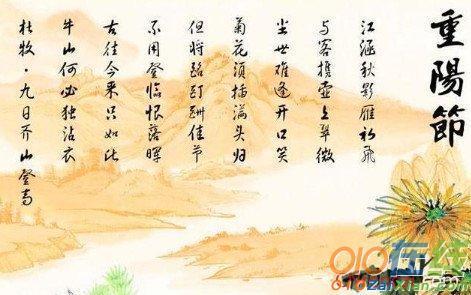 重陽節
江涵秋影雁初飞
与客携壶上翠微
尘世难逢开口笑
菊花须插满头归
但将酩酊酬佳节
不用登临恨落晖
古往今来只如此
牛山何必独沾衣
杜牧·九日齐山登高
010在线
010zaixian.com